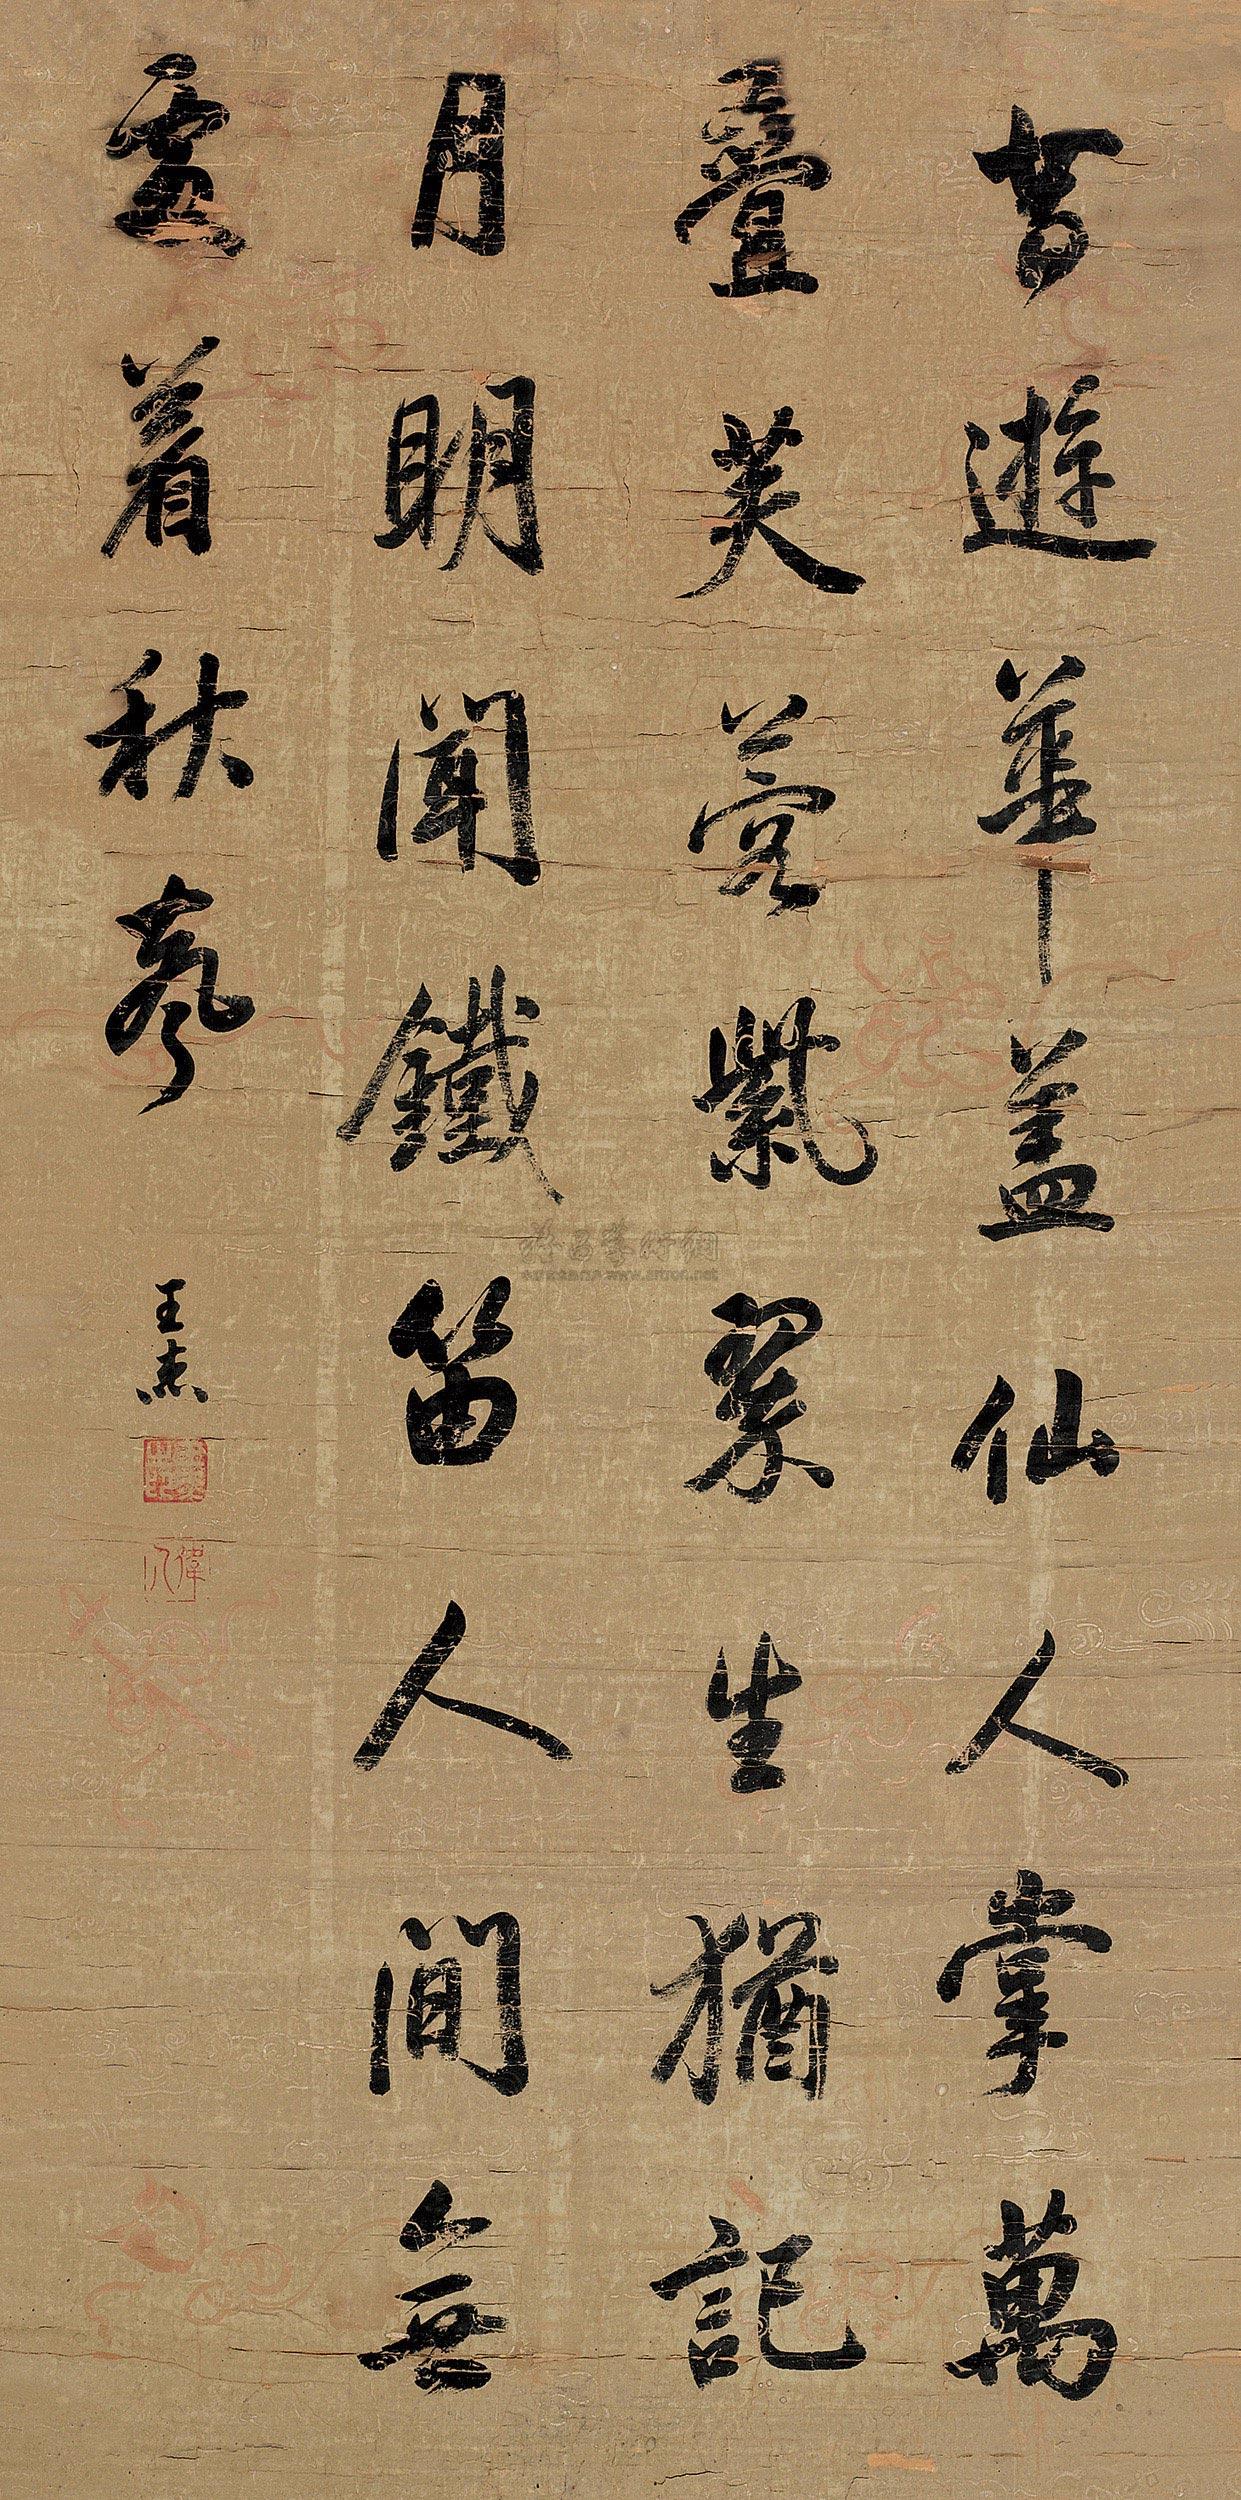 昔遊華蓋仙人掌萬
疊芙蓉紫翠生猶記
月明聞鐵笛人間無
處着秋聲
王杰
偉人
雅昌藝術網
www.artron.net